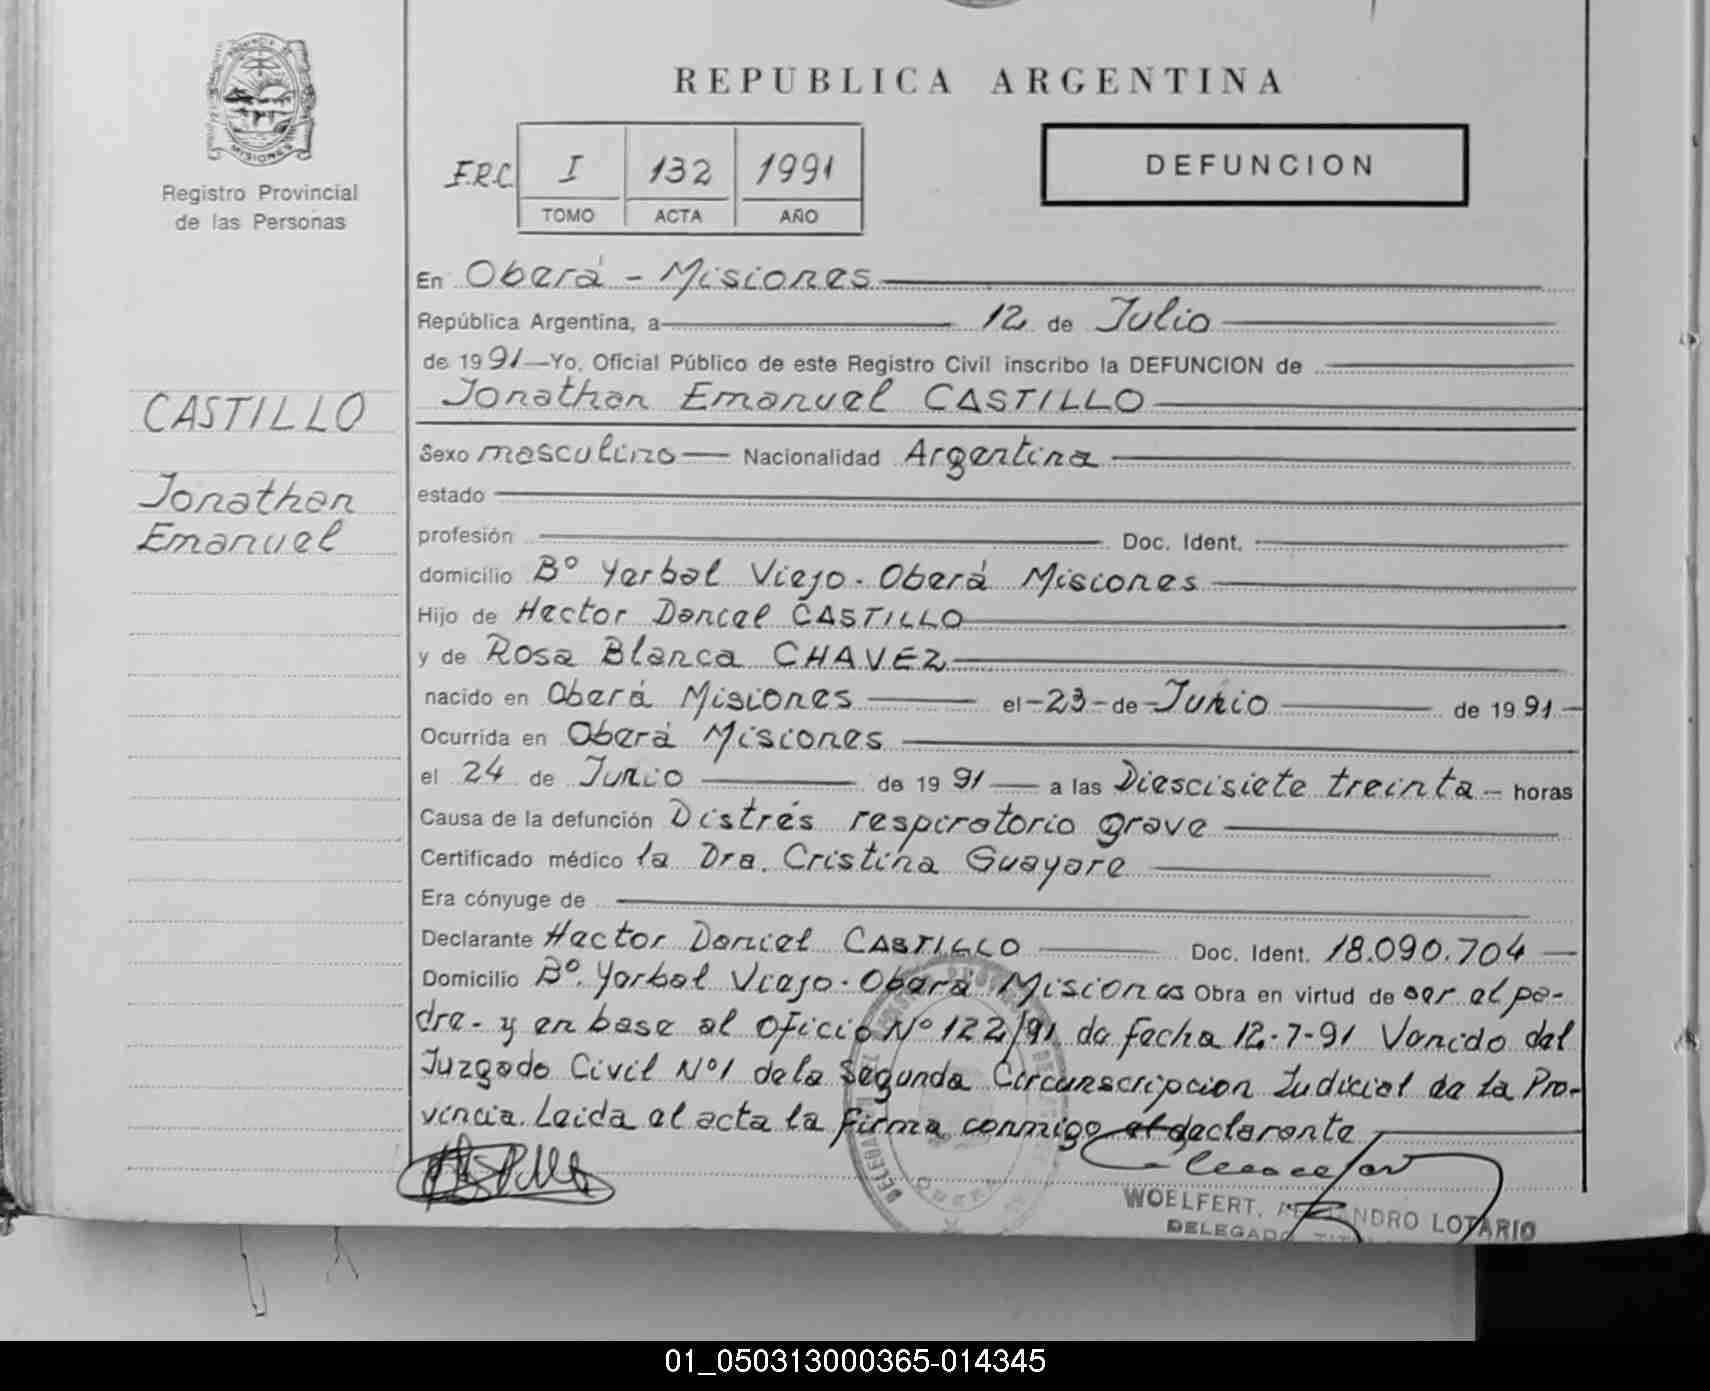 REPUBLICA ARGENTINA
PROVINCIA DE
MISIONES
Registro Provincial
de las Personas
F.R.C. I 132 1991
TOMO ACTA AÑO
DEFUNCION
CASTILLO
Jonathan
Emanuel
En Oberá - Misiones
República Argentina, a 12 de Julio
de 1991 - Yo, Oficial Público de este Registro Civil inscribo la DEFUNCION de
Jonathan Emanuel CASTILLO
Sexo masculino Nacionalidad Argentina
estado
profesión Doc. Ident.
domicilio Bº Yerbal Viejo. Oberá Misiones
Hijo de Hector Daniel CASTILLO
y de Rosa Blanca CHAVEZ
nacido en Oberá Misiones el -23- de Junio de 1991
Ocurrida en Oberá Misiones
el 24 de Junio de 1991 a las Diescisiete treinta - horas
Causa de la defunción Distrés respiratorio grave
Certificado médico la Dra. Cristina Guayare
Era cónyuge de
Declarante Hector Daniel CASTILLO Doc. Ident. 18.090.704
Domicilio Bº. Yerbal Viejo. Oberá Misiones Obra en virtud de ser el pa-
dre - y en base al Oficio Nº 122/91 de fecha 12-7-91 Venido del
Juzgado Civil Nº1 de la Segunda Circunscripcion Judicial de la Pro-
vincia. Leida el acta la firma conmigo el declarante
WOELFERT, ALEJANDRO LOTARIO
DELEGADO TITULAR
01_050313000365-014345